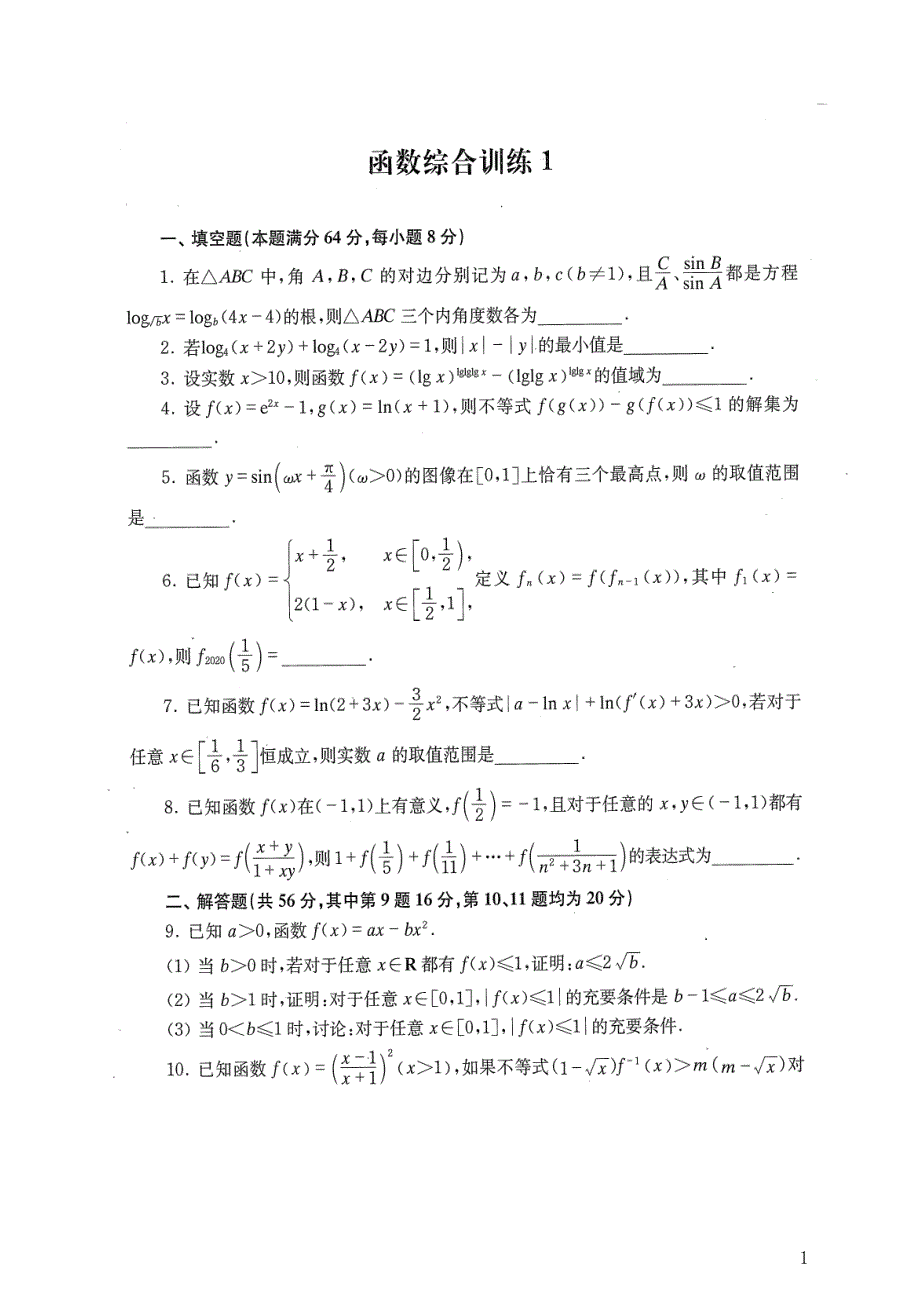 函数综合训练 1
一、填空题(本题满分 64 分,每小题 8 分)
1. 在△ABC 中,角 A,B,C 的对边分别记为 a,b,c(b≠1),且 C/A、sin B/sin A 都是方程
log_{√b}x=log_b(4x-4)的根,则△ABC 三个内角度数各为________.
2. 若log₄(x+2y)+log₄(x-2y)=1,则|x|-|y|的最小值是________.
3. 设实数 x>10,则函数 f(x)=(lg x)^{lglglg x}-(lglg x)^{lglg x}的值域为________.
4. 设 f(x)=e^{2x}-1,g(x)=ln(x+1),则不等式 f(g(x))-g(f(x))≤1 的解集为
________.
5. 函数 y=sin(ωx+π/4)(ω>0)的图像在[0,1]上恰有三个最高点,则 ω 的取值范围
是________.
6. 已知 f(x)={x+1/2, x∈[0,1/2), 2(1-x), x∈[1/2,1], 定义 fₙ(x)=f(fₙ₋₁(x)),其中 f₁(x)=
f(x),则 f₂₀₂₀(1/5)=________.
7. 已知函数 f(x)=ln(2+3x)-3/2x²,不等式|a-ln x|+ln(f′(x)+3x)>0,若对于
任意 x∈[1/6,1/3]恒成立,则实数 a 的取值范围是________.
8. 已知函数 f(x)在(-1,1)上有意义,f(1/2)=-1,且对于任意的 x,y∈(-1,1)都有
f(x)+f(y)=f((x+y)/(1+xy)),则1+f(1/5)+f(1/11)+…+f(1/(n²+3n+1))的表达式为________.
二、解答题(共 56 分,其中第 9 题 16 分,第 10、11 题均为 20 分)
9. 已知 a>0,函数 f(x)=ax-bx².
(1) 当 b>0 时,若对于任意 x∈R 都有 f(x)≤1,证明:a≤2√b.
(2) 当 b>1 时,证明:对于任意 x∈[0,1],|f(x)≤1|的充要条件是 b-1≤a≤2√b.
(3) 当 0<b≤1 时,讨论:对于任意 x∈[0,1],|f(x)≤1|的充要条件.
10. 已知函数 f(x)=((x-1)/(x+1))²(x>1),如果不等式(1-√x)f⁻¹(x)>m(m-√x)对
1